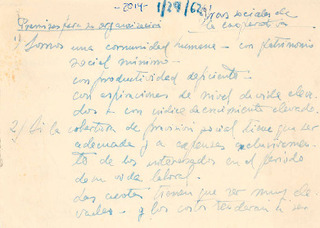 -2014- 1/29/62
Premisas para su organización
Areas sociales de la cooperativa
1) Somos una comunidad humana - con patrimonio
social mínimo -
con productividad deficiente -
con aspiraciones de nivel de vida eleva-
dos - con indice de crecimiento elevado.
2) Si la cobertura de prevision social tiene que ser
adecuada y a expensas exclusivamen-
te de los interesados en el periodo
de su vida laboral -
Los costes tienen que ser muy ele-
vados - y los costos tenderan a ser